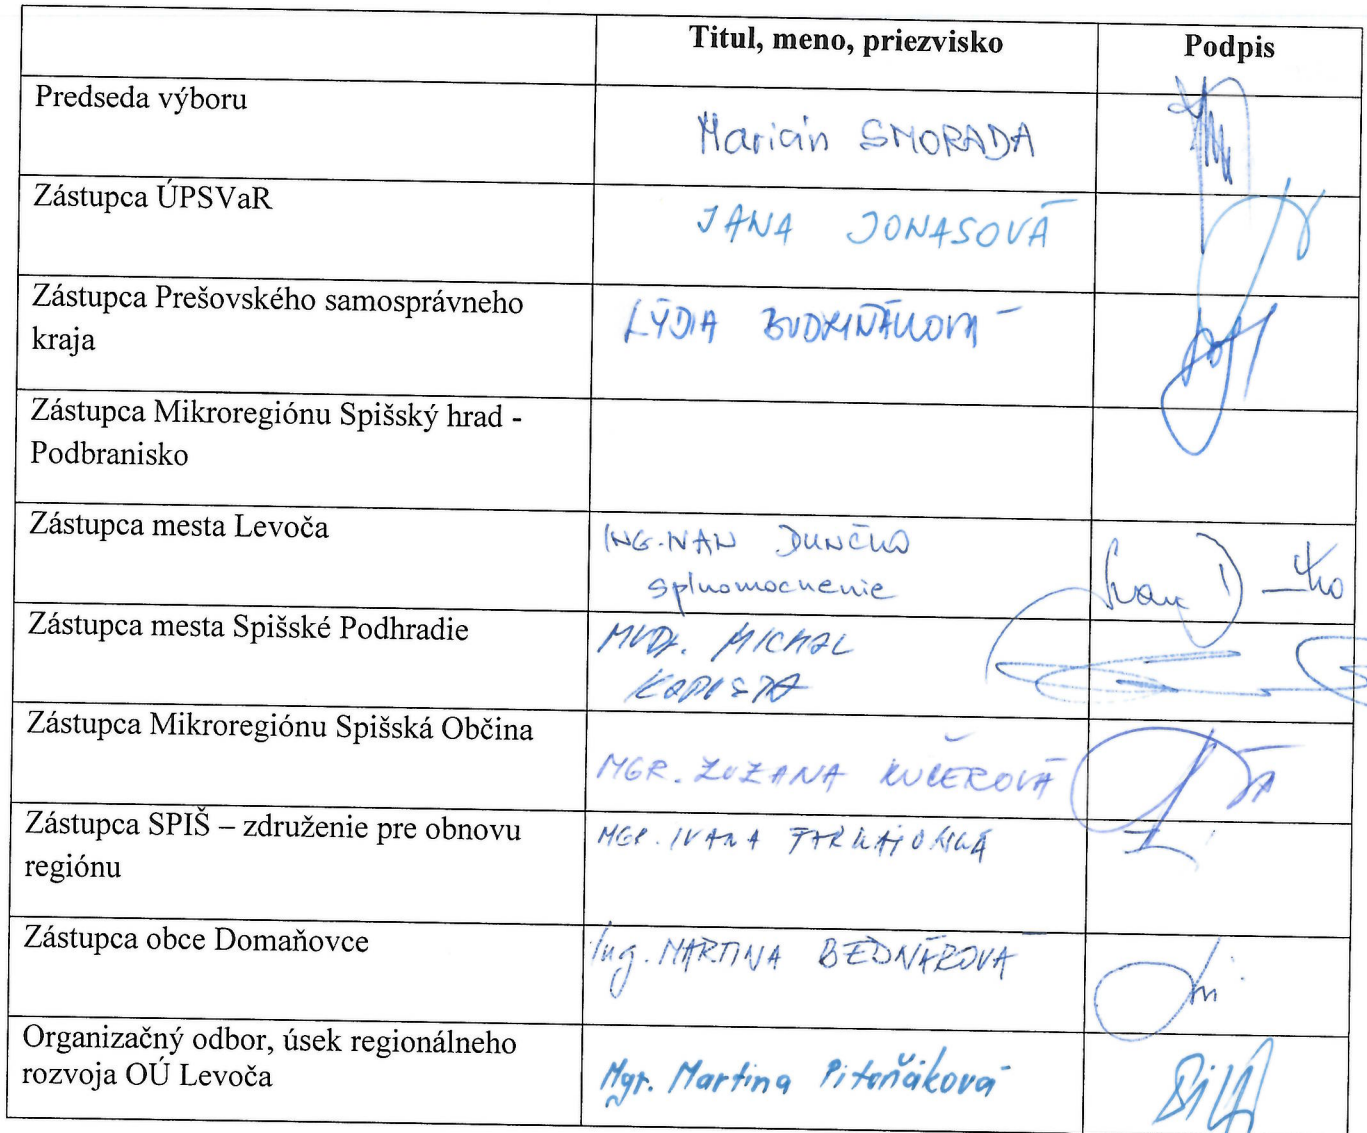 Titul, meno, priezvisko Podpis
Predseda výboru
Marián SMORADA
Zástupca ÚPSVaR
JANA JONASOVÁ
Zástupca Prešovského samosprávneho
kraja
LÝDIA BUDZIŇÁKOVÁ
Zástupca Mikroregiónu Spišský hrad -
Podbranisko
Zástupca mesta Levoča
ING. IVAN DUNČKO
splnomocnenie
Zástupca mesta Spišské Podhradie
MUDr. MICHAL
KAPUSTA
Zástupca Mikroregiónu Spišská Občina
MGR. ZUZANA KUČEROVÁ
Zástupca SPIŠ – združenie pre obnovu
regiónu
MGR. IVANA
Zástupca obce Domaňovce
Ing. MARTINA BEDNÁROVÁ
Organizačný odbor, úsek regionálneho
rozvoja OÚ Levoča
Mgr. Martina Pitoňáková